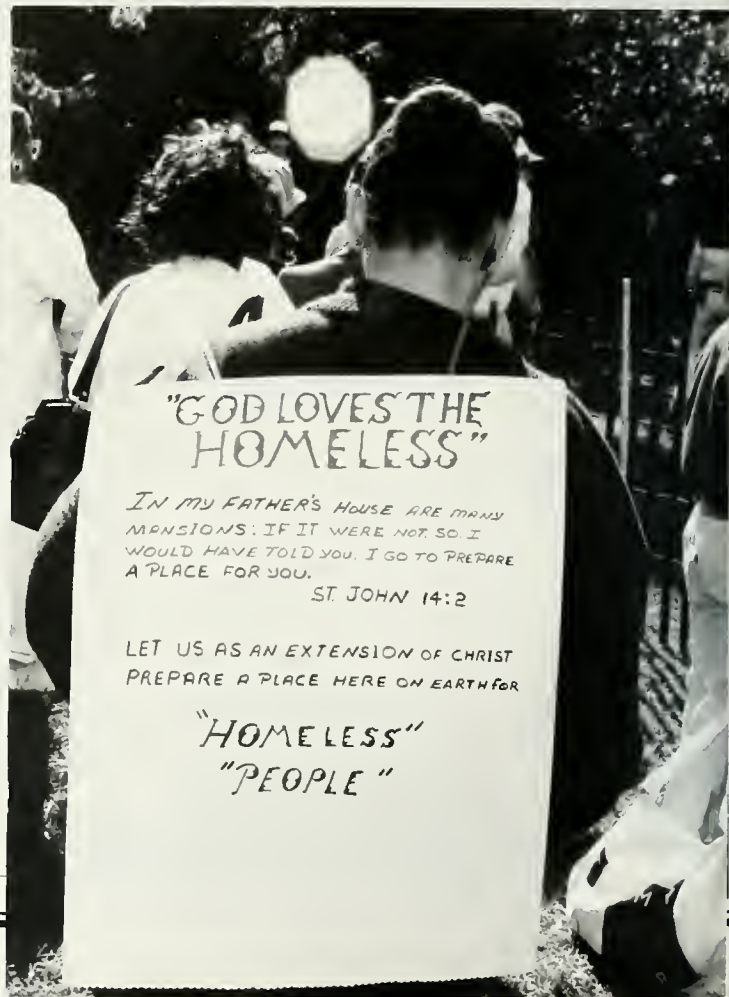 "GOD LOVES THE
HOMELESS"
IN MY FATHER'S HOUSE ARE MANY
MANSIONS: IF IT WERE NOT SO. I
WOULD HAVE TOLD YOU. I GO TO PREPARE
A PLACE FOR YOU.
ST. JOHN 14:2
LET US AS AN EXTENSION OF CHRIST
PREPARE A PLACE HERE ON EARTH FOR
"HOMELESS"
"PEOPLE"